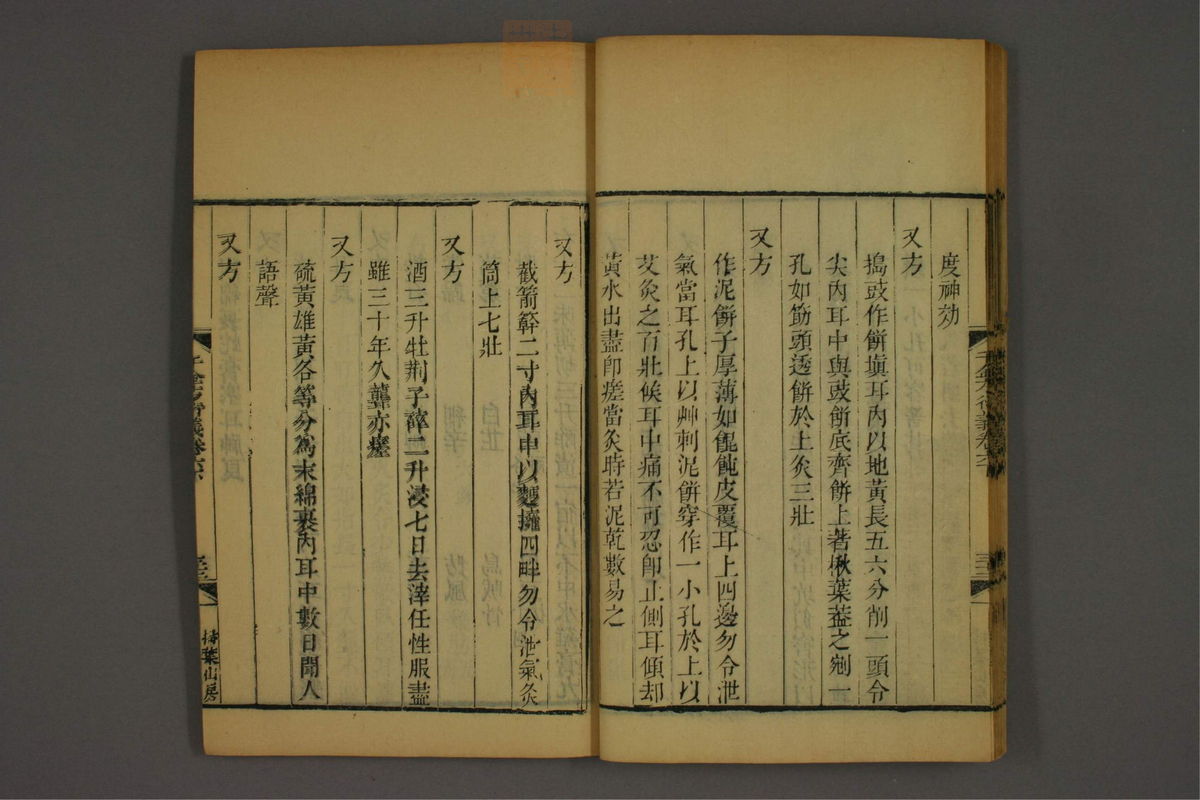 度神効
又方
搗豉作餅塡耳內以地黃長五六分削一頭令
尖內耳中與豉餅底齊餅上著楸葉蓋之剜一
孔如筋頭透餅於上灸三壯
又方
作泥餅子厚薄如餛飩皮覆耳上四邊勿令泄
氣當耳孔上以艸刺泥餅穿作一小孔於上以
艾灸之百壯候耳中痛不可忍卽止側耳傾却
黃水出盡卽瘥當灸時若泥乾數易之
又方
截箭簳二寸內耳中以麵擁四畔勿令泄氣灸
筒上七壯
又方
酒三升牡荆子碎二升浸七日去滓任性服盡
雖三十年久聾亦瘥
又方
硫黃雄黃各等分爲末綿裹內耳中數日聞人
語聲
又方
千金方衍義卷六
掃葉山房